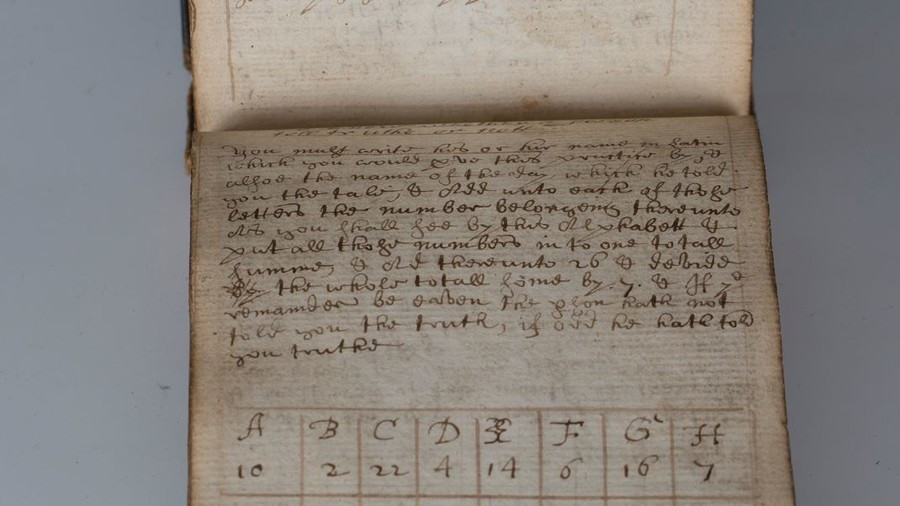 tell truthe or not
You must write his or her name in Latin
which you would p've this practice by, &
allsoe the name of the day which he told
you the tale, & Add unto each of those
letters the number belongeing thereunto
As you shall see by this Alphabett &
put all those numbers in to one totall
summe, & Ad thereunto 26 & devide
the whole totall some by .7. & If ye
remainder be eaven the pson hath not
told you the truth, if odd he hath told
you truthe
A B C D E F G H
10 2 22 4 14 6 16 7